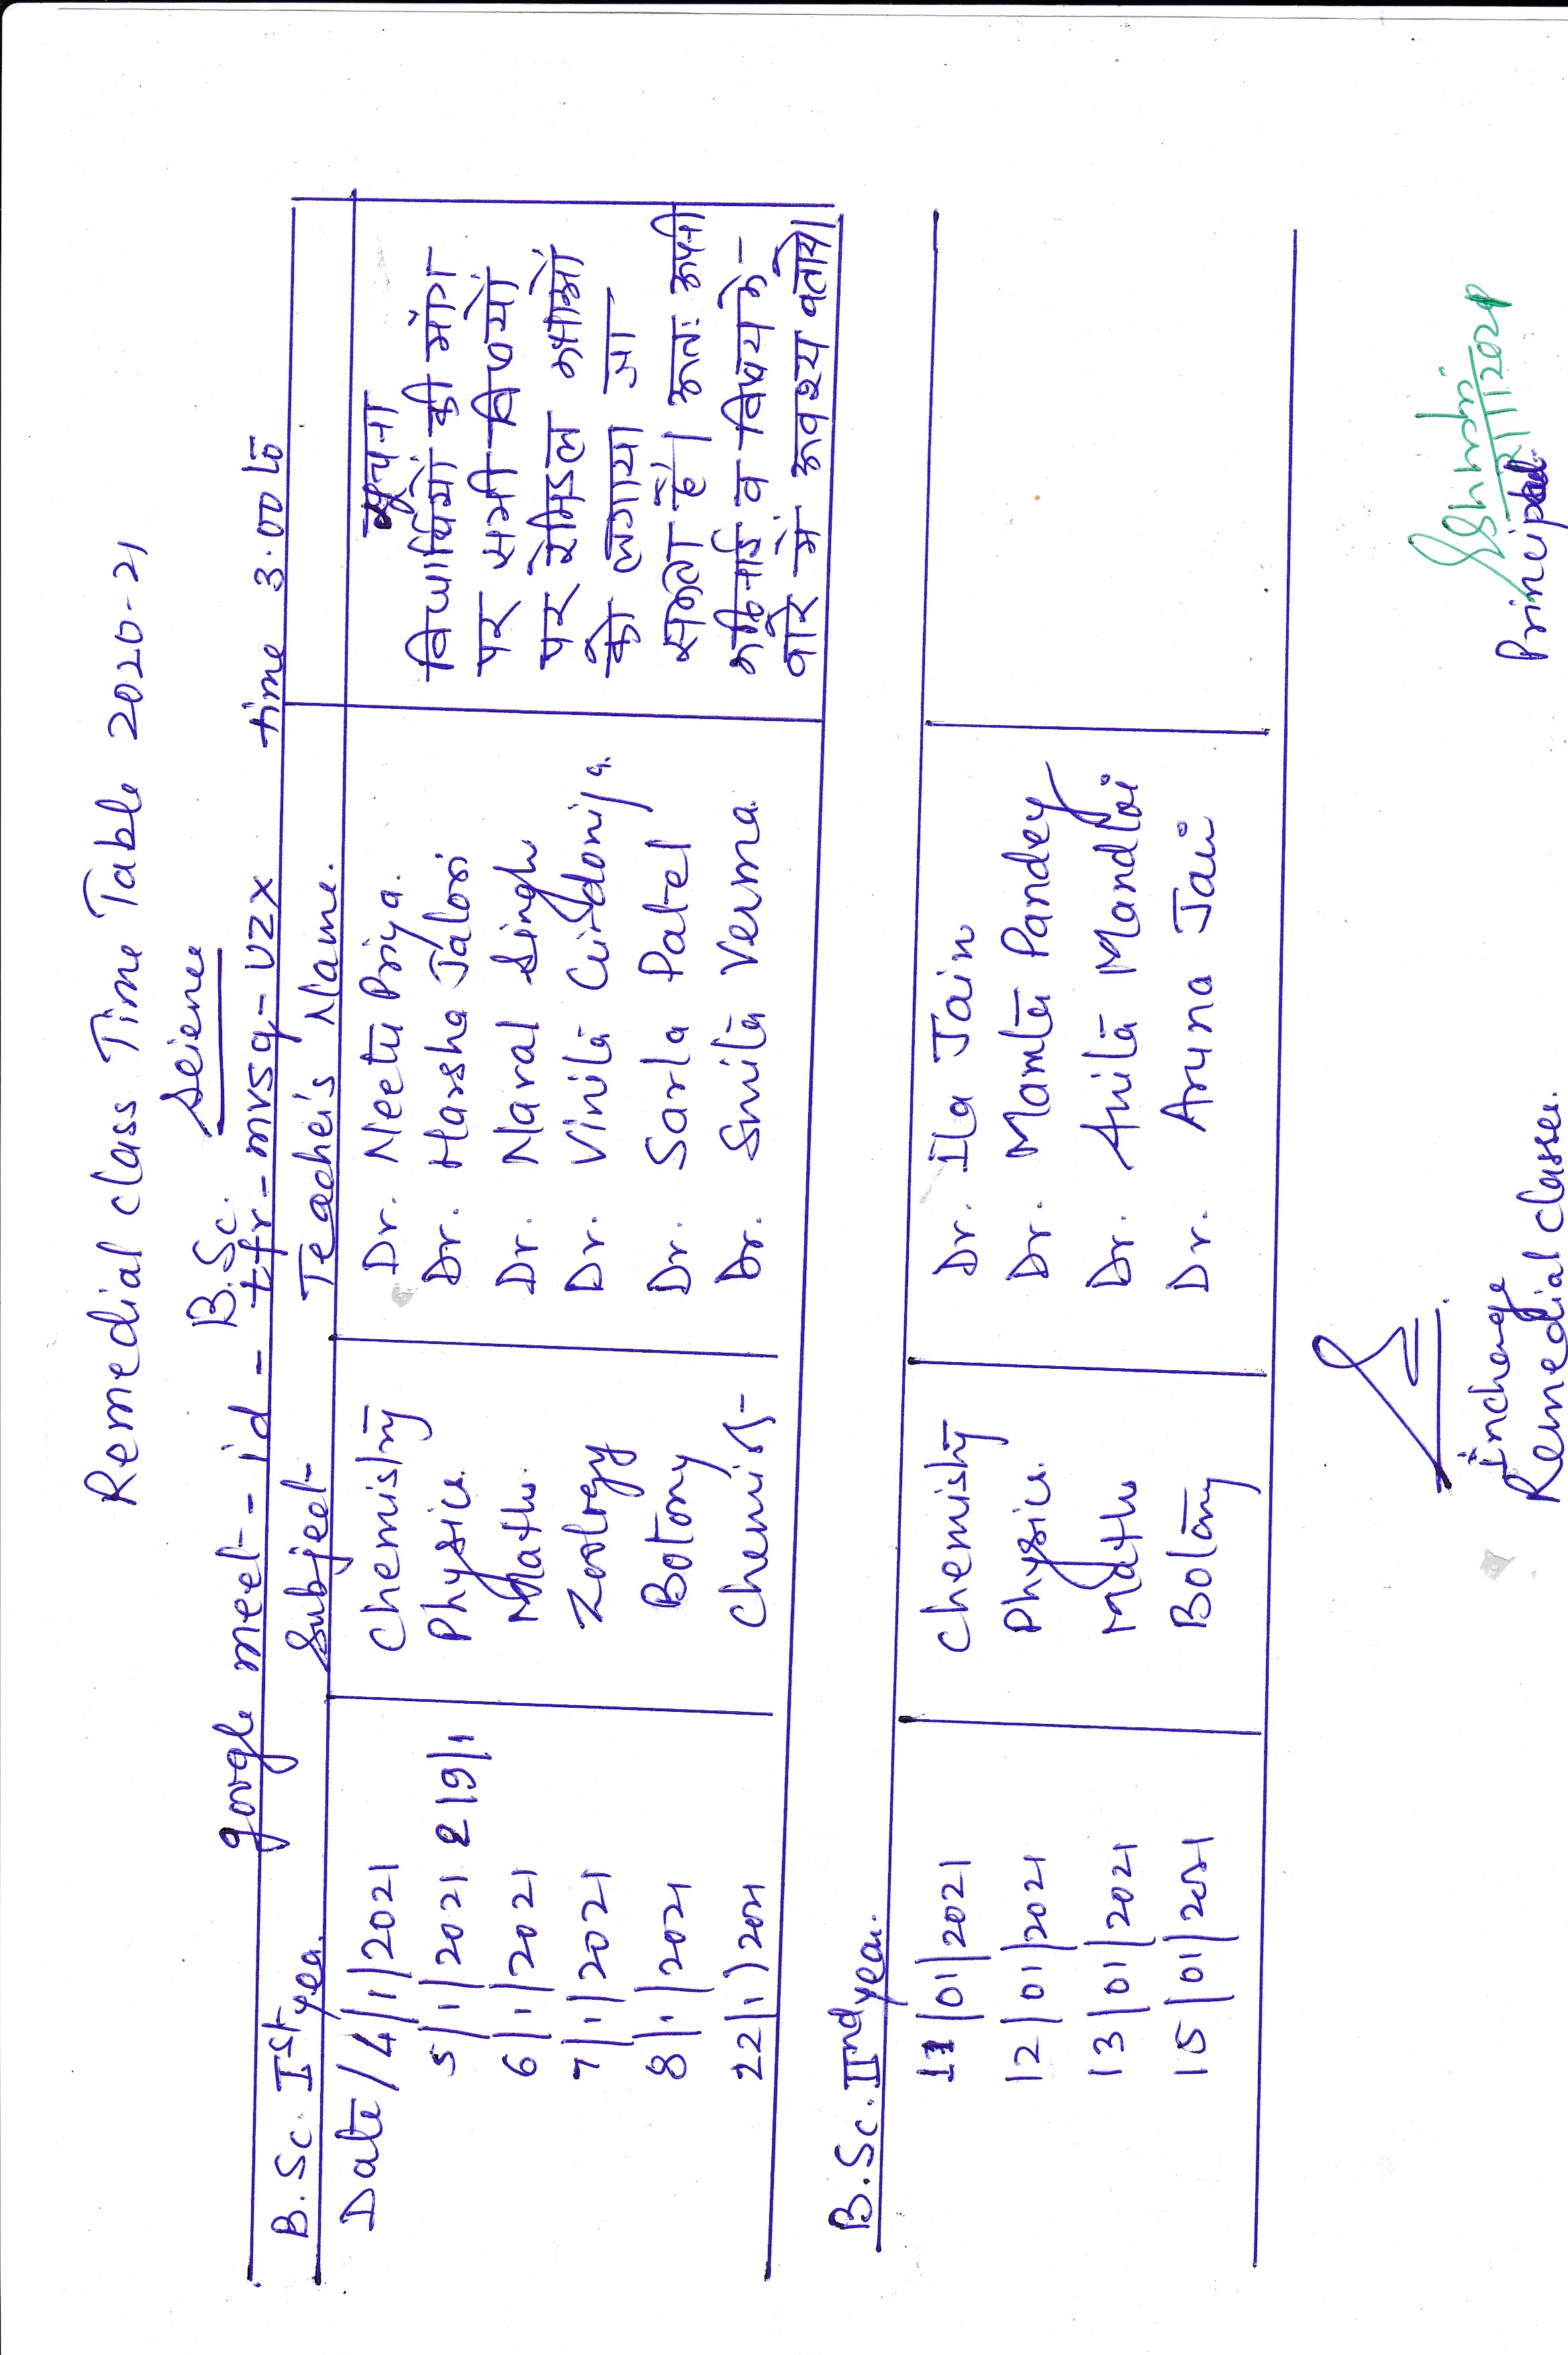 Remedial class Time Table 2020-21
Science
B.Sc.
google meet - id - tfr-mvsq-uzx time 3.00 to
B.Sc. Ist year. Subject Teache's Name.
Date / 4/1/2021 Chemistry Dr. Neetu Priya.
5/1/2021 219/1 Physics Dr. Harsha Jalori
6/1/2021 Maths. Dr. Naral Singh
7/1/2021 Zoology Dr. Vinita
8/1/2021 Botony Dr. Sarla Patel
22/1/2021 Chemist Dr. Smita Verma.
सूचना
विद्यार्थियों की मांग
पर सभी विषयों
पर रेमिडल कक्षाओं
को लगाया जा
सकता है। अतः अपनी
कठिनाई व विषय के-
बारे में अवश्य बताये।
B.Sc. IInd year.
11/01/2021 Chemistry Dr. Ila Jain
12/01/2021 Physics. Dr. Mamta Pandey
13/01/2021 Maths Dr. Anita Mandloi
15/01/2021 Botany Dr. Aruna Jain
Incharge
Remedial classes.
2/1/2021
Principal